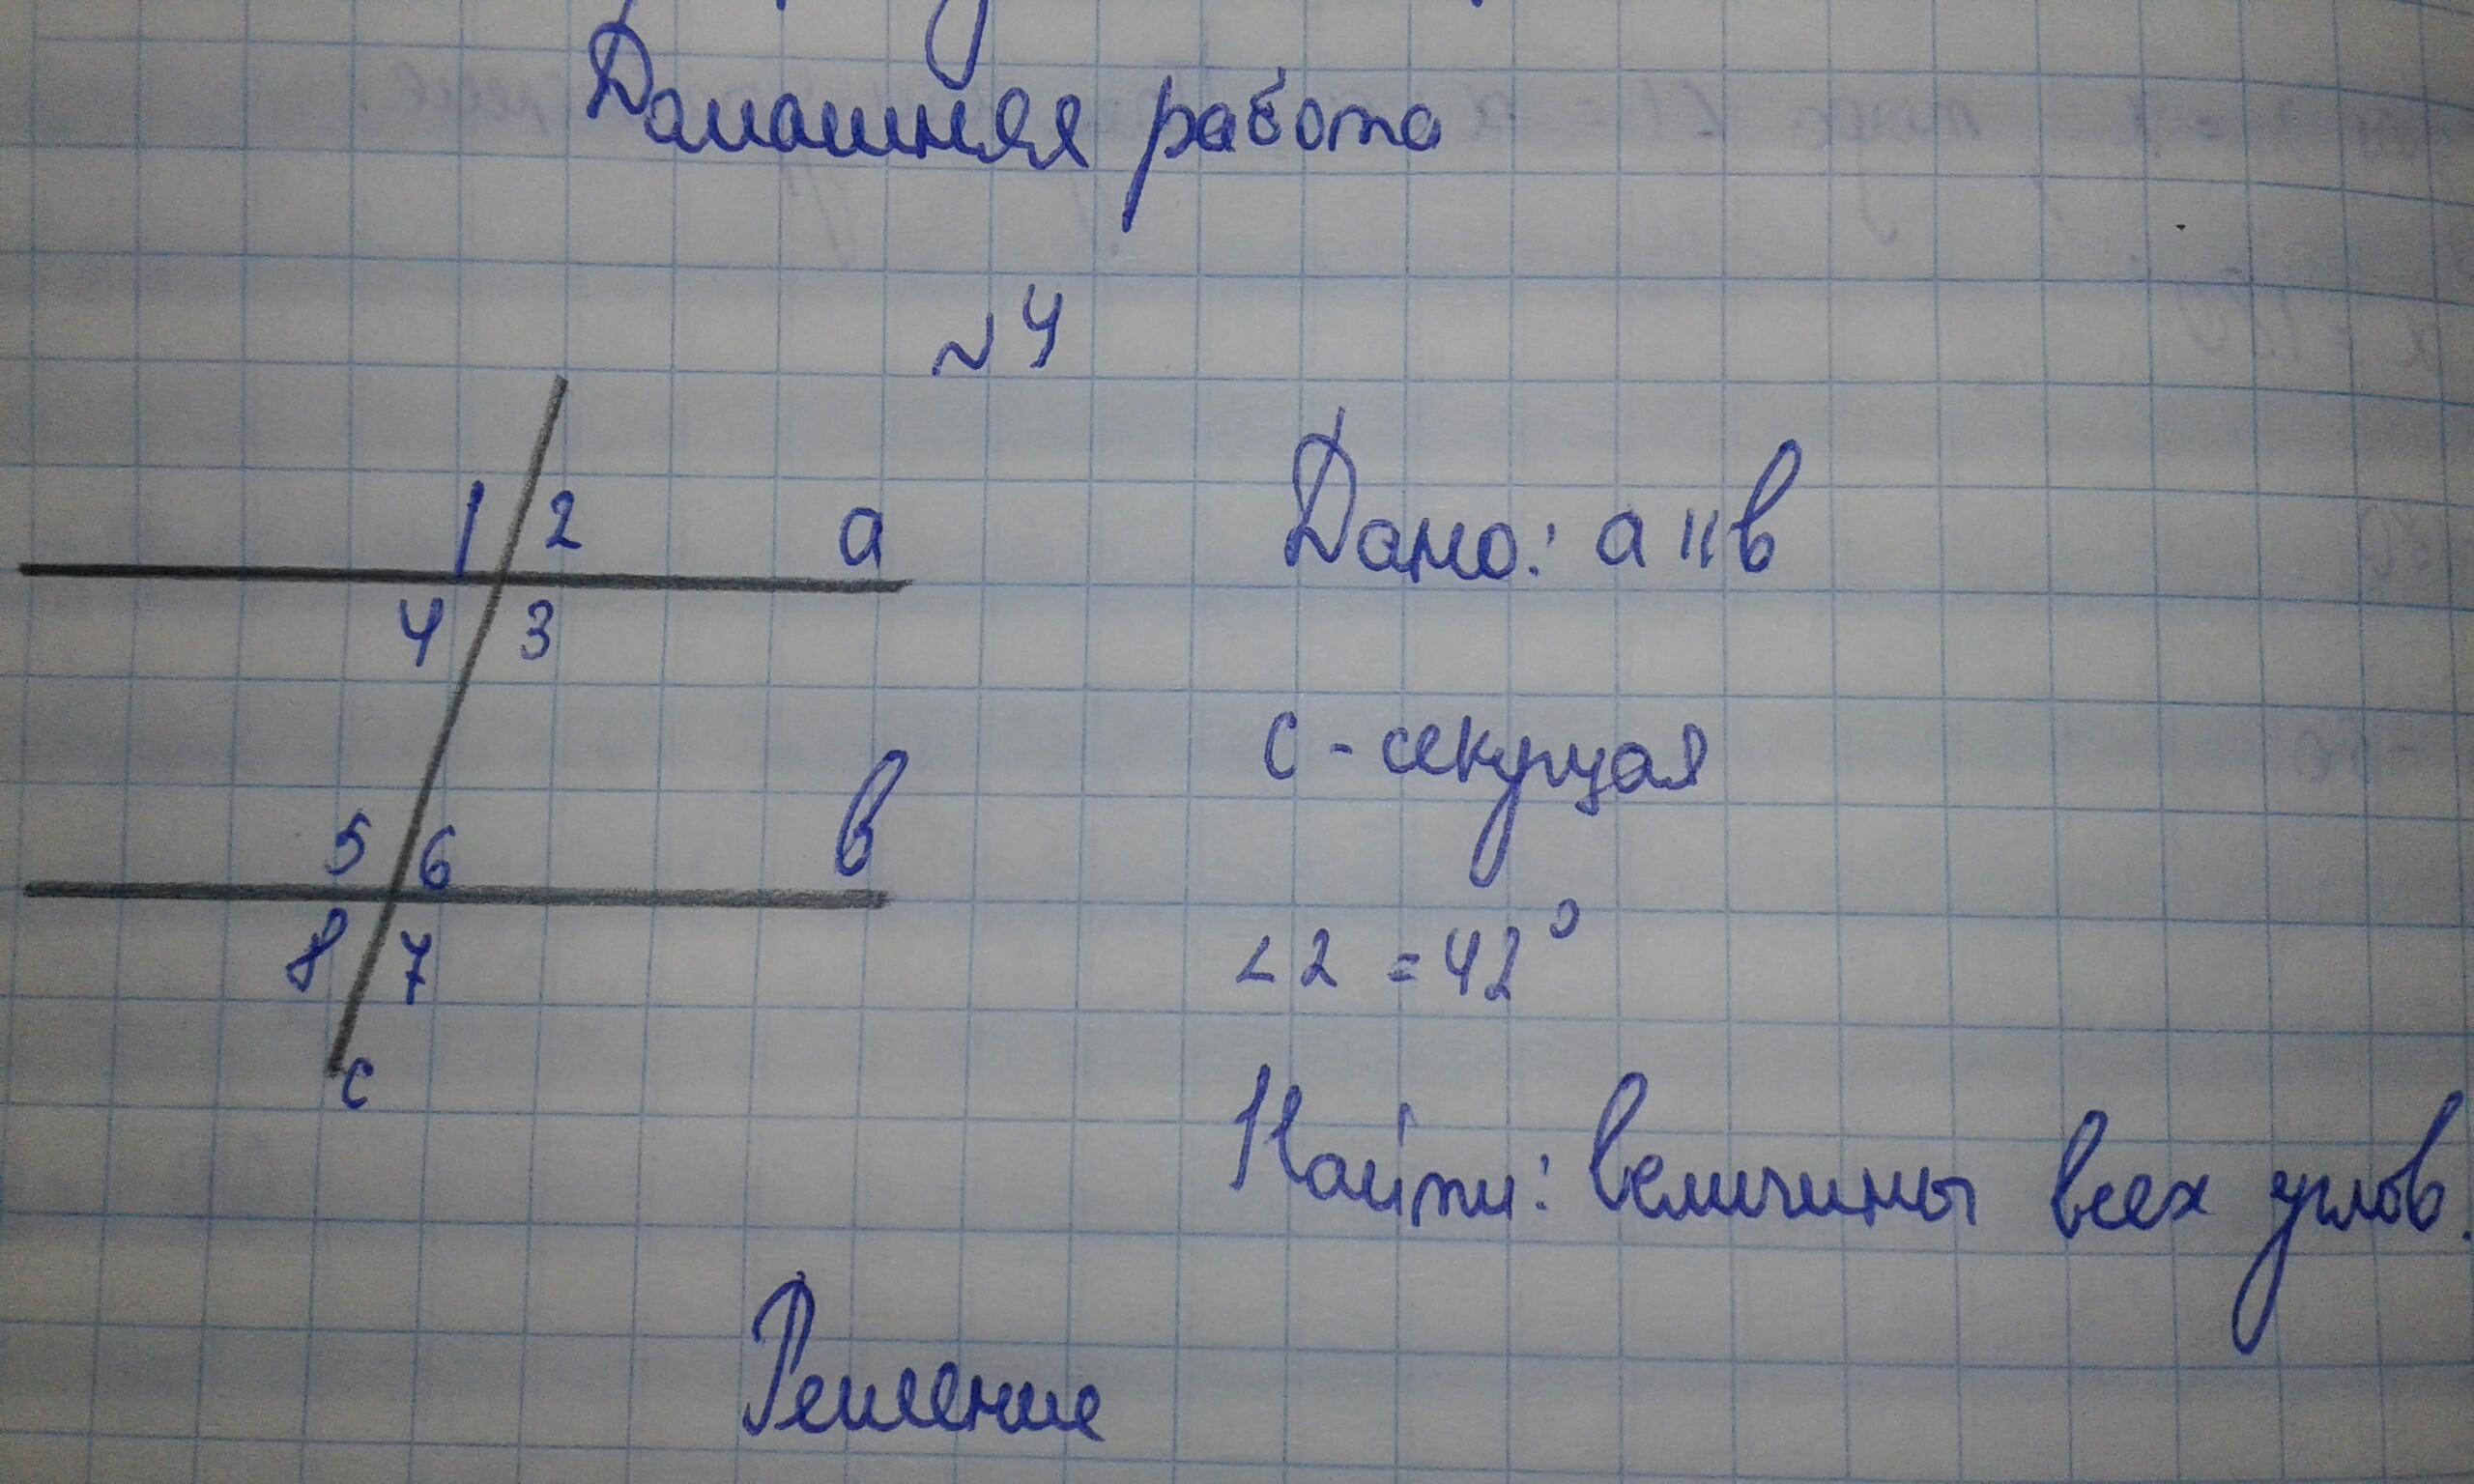 Домашняя работа
№4
1 2 a
4 3
5 6 в
8 7
c
Дано: a || в
c - секущая
∠2 = 42°
Найти: величины всех углов.
Решение